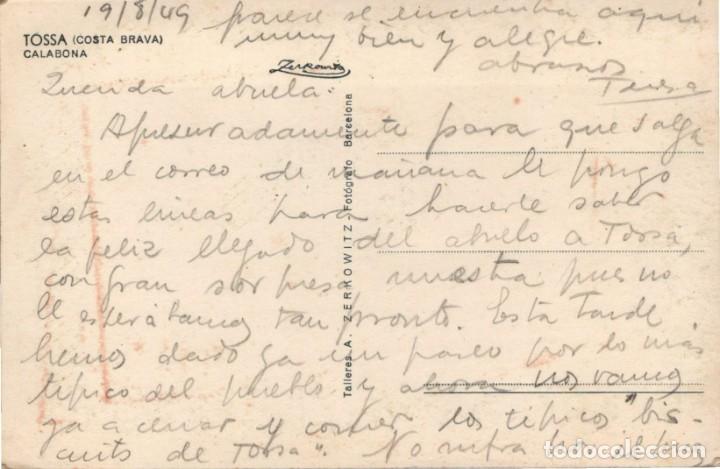 19/8/49 parece se encuentra aquí
muy bien y alegre.
abrazos
Teresa
TOSSA (COSTA BRAVA)
CALABONA
Zerkowitz
Querida abuela:
Apresuradamente para que salga
en el correo de mañana le pongo
estas lineas para hacerle saber
la feliz llegada del abuelo a Tossa,
con gran sorpresa nuestra pues no
le esperábamos tan pronto. Esta Tarde
hemos dado ya un paseo por lo más
típico del pueblo y ahora nos vamos
ya a cenar y comer los típicos "bis-
cuits de Tossa". No sufra por el
Talleres A. ZERKOWITZ Fotógrafo Barcelona
todocoleccion.net